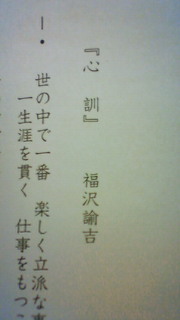 『心訓』 福沢諭吉
一・ 世の中で一番 楽しく立派な事
一生涯を貫く 仕事をもつこ